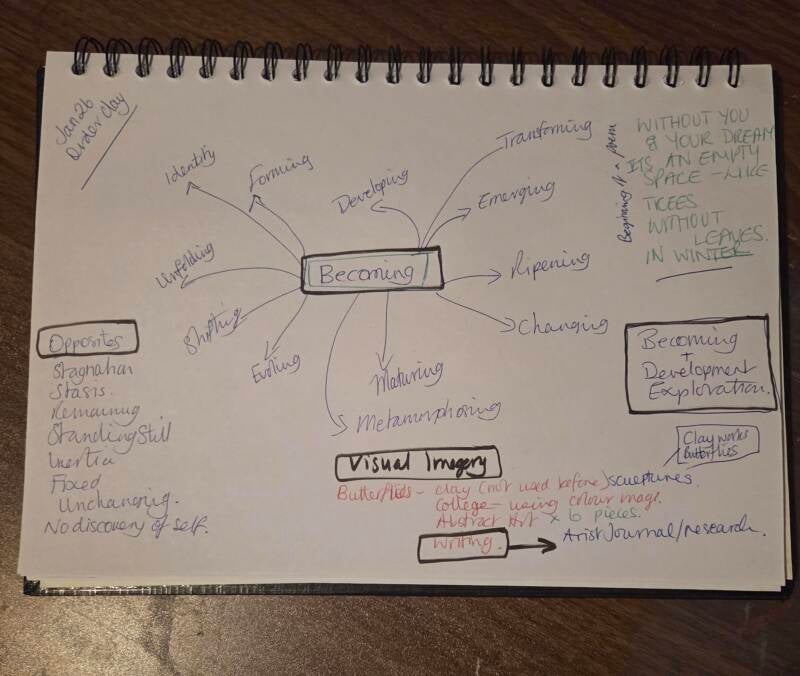 Jan 26
Order Clay
Identity
Forming
Developing
Transforming
Emerging
Unfolding
Becoming
Ripening
Shifting
Evolving
Maturing
Changing
Metamorphosing
Beginning of a poem
WITHOUT YOU
& YOUR DREAM
ITS AN EMPTY
SPACE - LIKE
TREES
WITHOUT
LEAVES.
IN WINTER
Opposites
Stagnation
Stasis.
Remaining
Standing Still
Inertia
Fixed
Unchanging.
No discovery of self.
Becoming
+
Development
Exploration.
Clay works
Butterflies
Visual Imagery
Butterflies - clay (not used before) sculptures.
College - using colour mags.
Abstract Art × 6 pieces.
Writing. → Artist Journal/research.